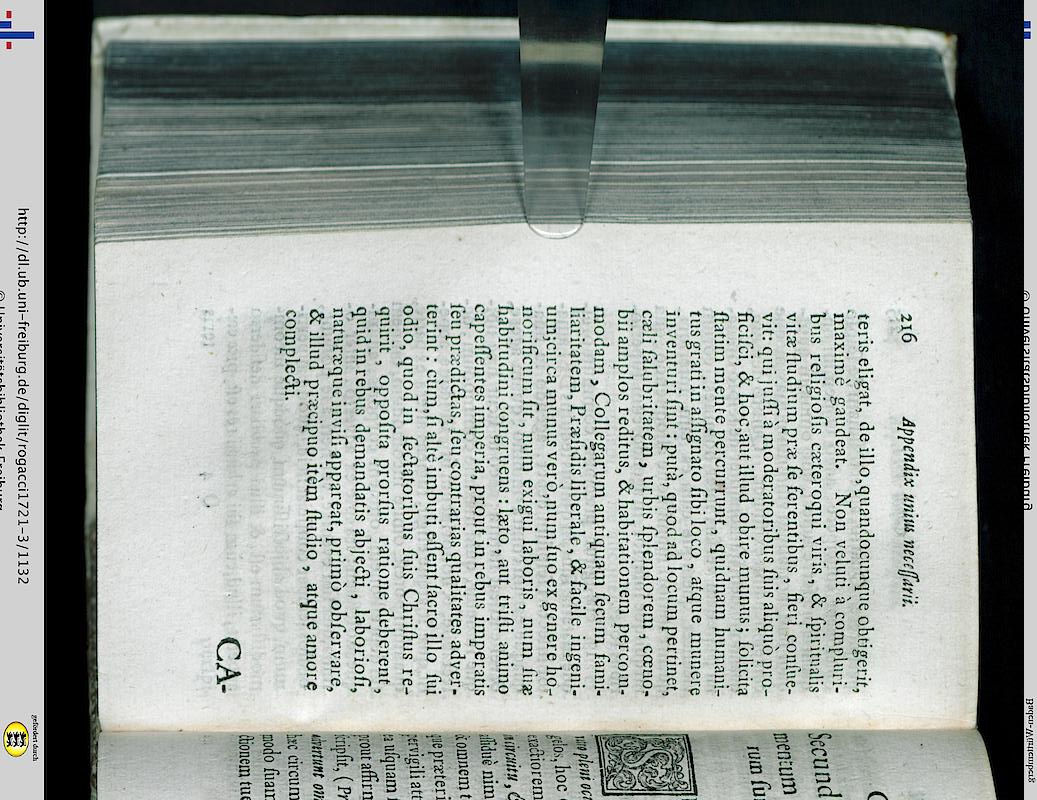 216 Appendix unius neceſſarii.
teris eligat, de illo, quandocunque obtigerit,
maximè gaudeat. Non veluti à compluri-
bus religioſis cæteroqui viris, & ſpiritualis
vitæ ſtudium præ ſe ferentibus, fieri conſue-
vit: qui juſſi à moderatoribus ſuis aliquò pro-
ficiſci, & hoc, aut illud obire munus; ſolicita
ſtatim mente percurrunt, quidnam humani-
tus grati in aſſignato ſibi loco, atque munere
inventuri ſint: putà, quod ad locum pertinet,
cæli ſalubritatem, urbis ſplendorem, cœno-
bii amplos reditus, & habitationem percom-
modam, Collegarum antiquam ſecum fami-
liaritatem, Præſidis liberale, & facile ingeni-
um; circa munus verò, num ſuo ex genere ho-
norificum ſit, num exigui laboris, num ſuæ
habitudini congruens: læto, aut triſti animo
capeſſentes imperia, prout in rebus imperatis
ſeu prædictas, ſeu contrarias qualitates adver-
terint: cùm, ſi altè imbuti eſſent ſacro illo ſui
odio, quod in ſectatoribus ſuis Chriſtus re-
quirit, oppoſita prorſus ratione deberent,
quid in rebus demandatis abjecti, laborioſi,
naturæque inviſi appareat, primò obſervare,
& illud præcipuo item ſtudio, atque amore
complecti.
CA-
Secund
mentum
rum ſu
http://dl.ub.uni-freiburg.de/diglit/rogacci1721-3/1132
© Universitätsbibliothek Freiburg
gefördert durch